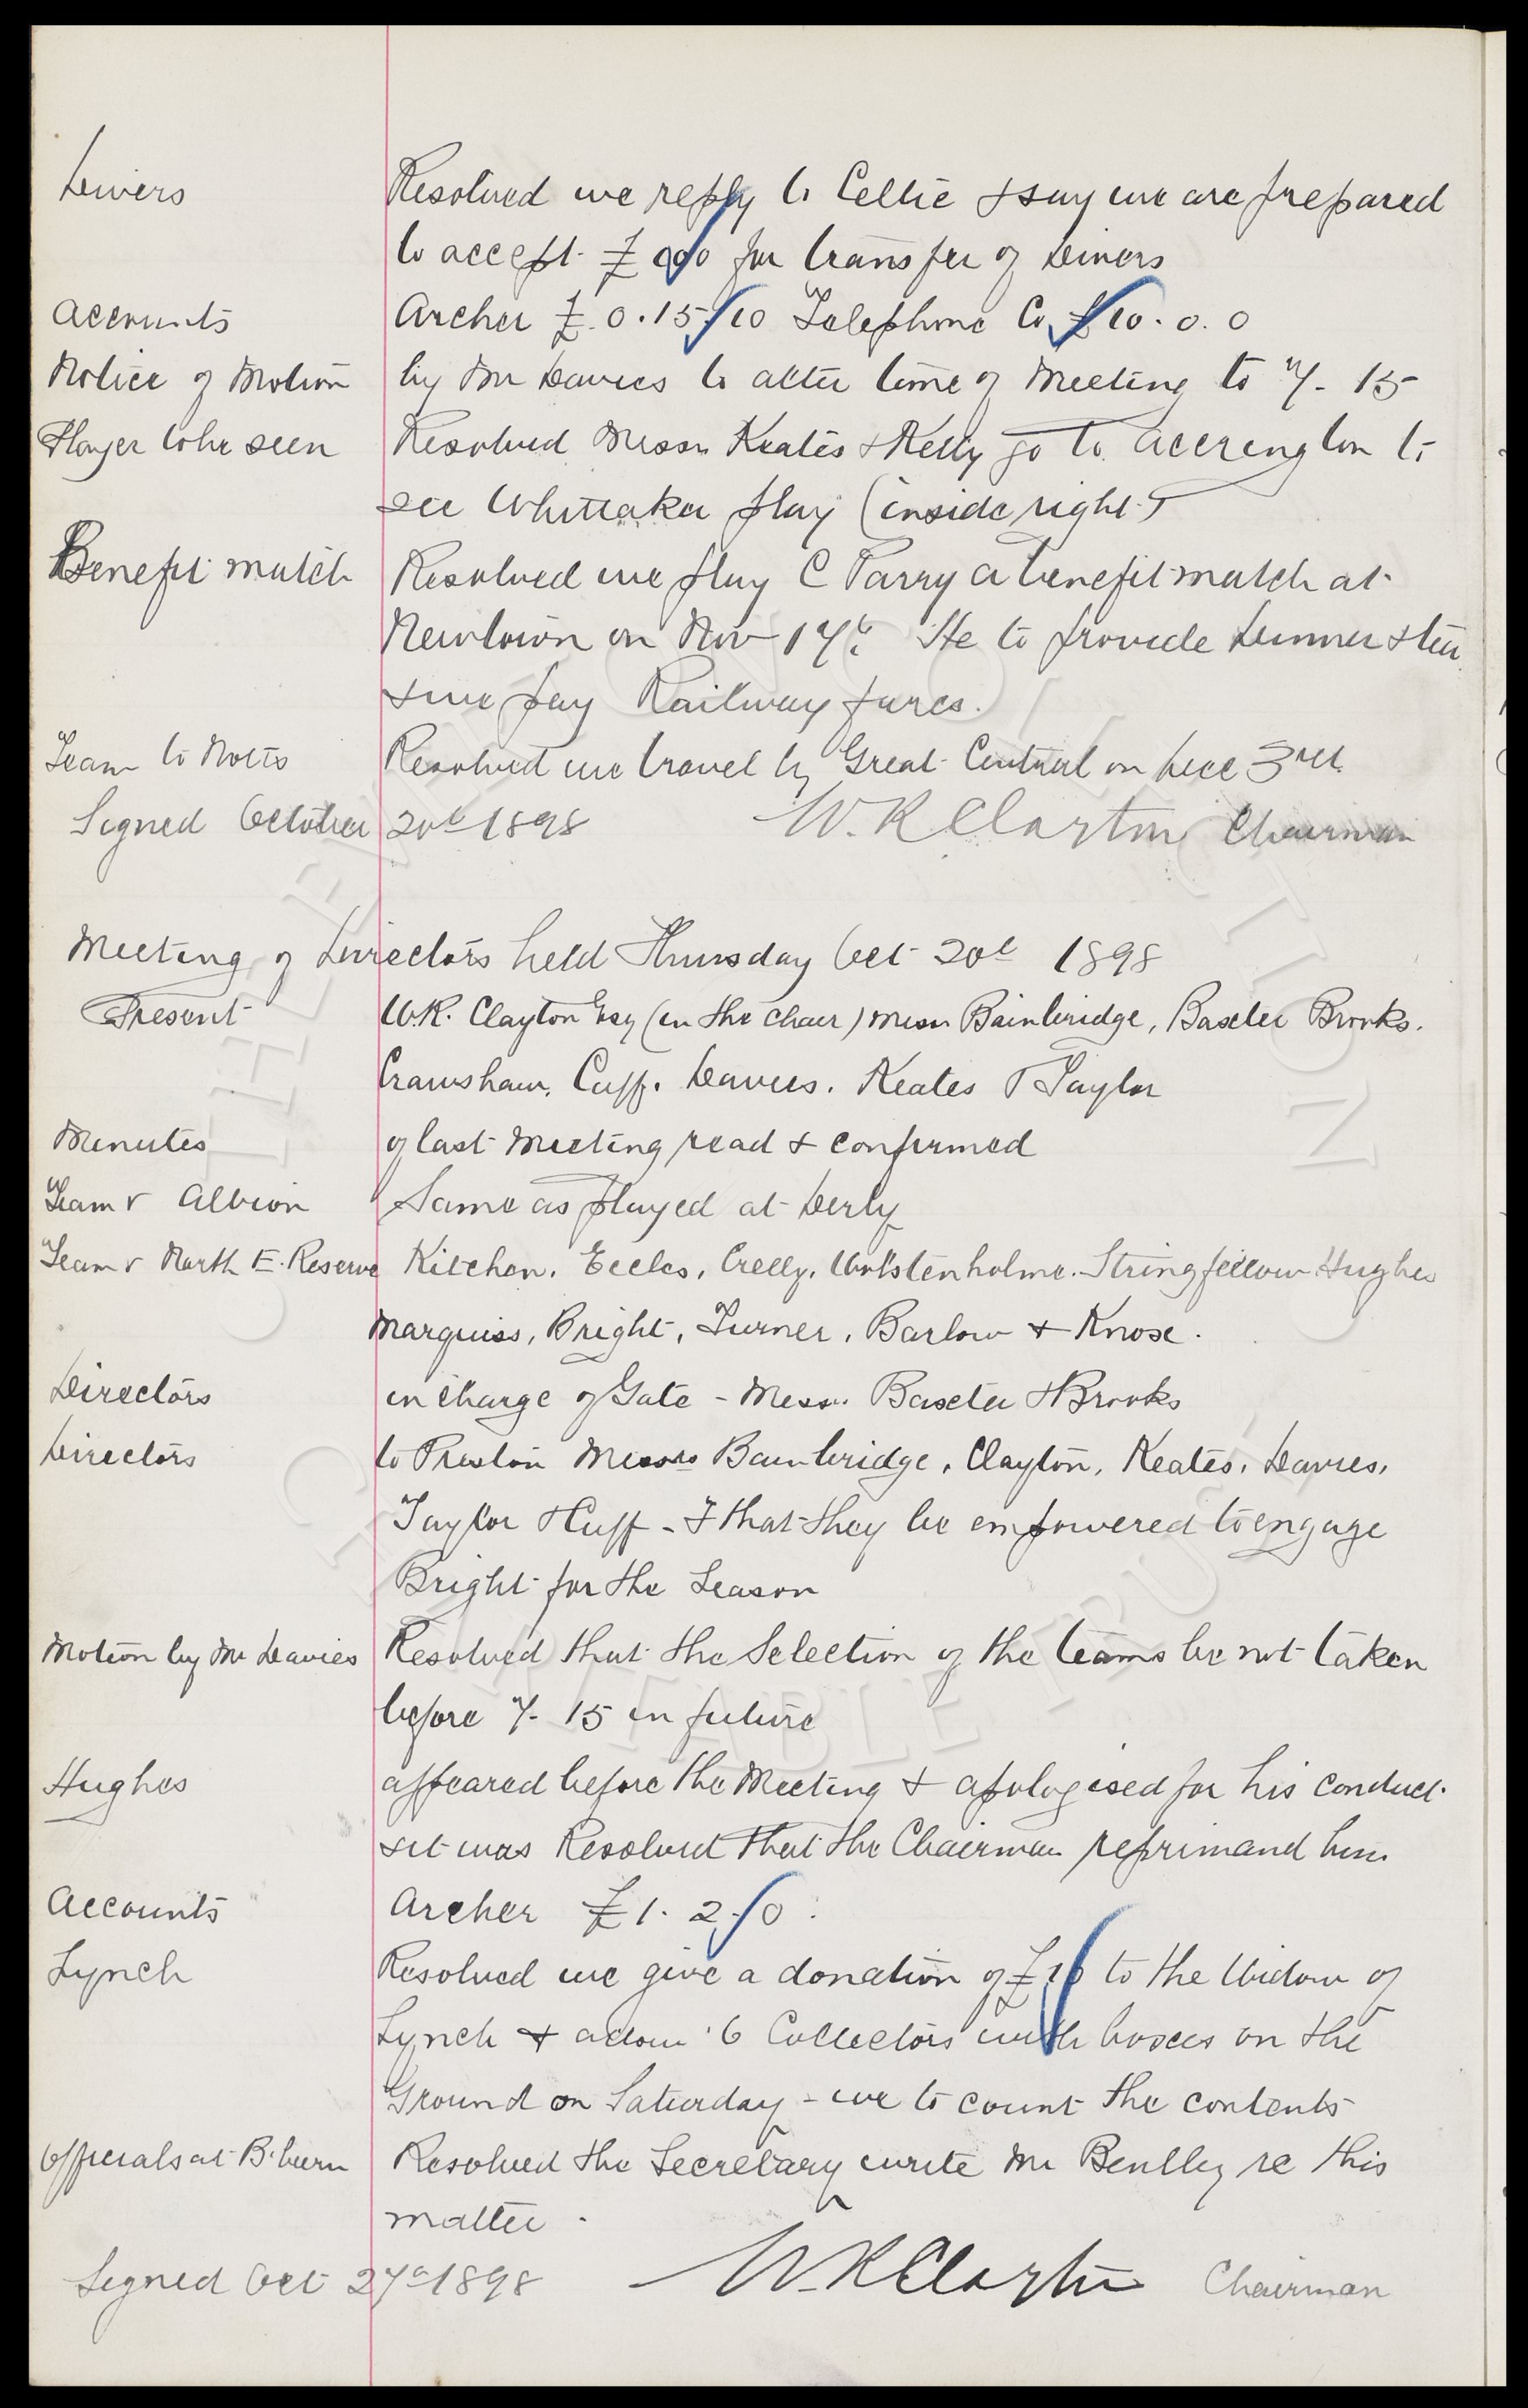 Divers Resolved we reply to Celtic & say we are prepared
to accept £ for transfer of Divers
Accounts Archer £0.15.10 Telephone Co £10.0.0
Notice of Motion by Mr Davies to alter time of Meeting to 7-15
Player to be seen Resolved Messrs Keates & Kelly go to Accrington to
see Whittaker play (inside right)
Benefit match Resolved we play C Parry a benefit match at
Newtown on Nov 14th. He to provide Dinner & tea
& we pay Railway fares.
Team to Notts Resolved we travel by Great Central on Dec 3rd.
Signed October 20th 1898 W.R Clayton Chairman
Meeting of Directors held Thursday Oct 20th 1898
Present W.R. Clayton Esq (in the chair) Messrs Bainbridge, Baxter Brooks.
Cranshaw, Cuff. Davies. Keates & Taylor
Minutes of last Meeting read & confirmed
Team v Albion Same as played at Derby
Team v North E. Reserve Kitchen. Eccles, Crelly, Wolstenholme. Stringfellow Hughes
Marquiss, Bright, Turner, Barlow & Knox.
Directors in charge of Gate - Messrs. Baxter & Brooks
Directors to Preston Messrs Bainbridge, Clayton, Keates, Davies,
Taylor & Cuff - & that they be empowered to engage
Bright for the Season
Motion by Mr Davies Resolved that the Selection of the teams be not taken
before 7-15 in future
Hughes appeared before the Meeting & apologised for his conduct
& it was Resolved that the Chairman reprimand him
Accounts Archer £1.2.0.
Lynch Resolved we give a donation of £10 to the Widow of
Lynch & allow 6 Collectors with boxes on the
Ground on Saturday - we to count the contents
Officials at B.burn Resolved the Secretary write Mr Bentley re this
matter.
Signed Oct 27th 1898 W.R Clayton Chairman